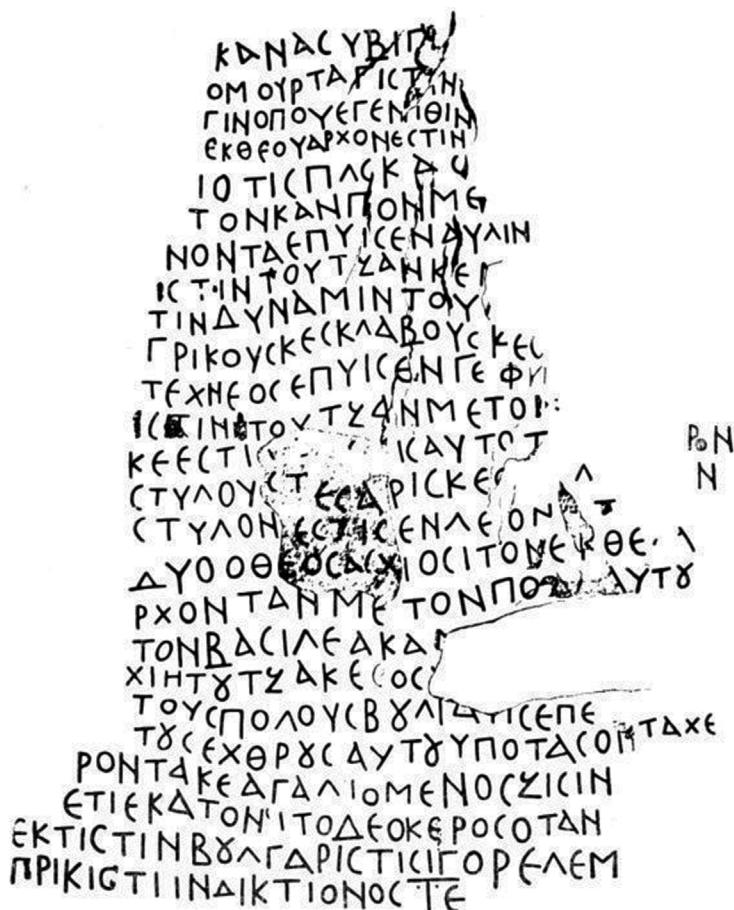 ΚΑΝΑCΥΒΙΓΙ
ΟΜΟΥΡΤΑΓΙCΤΙΝ
ΓΙΝΟΠΟΥΕΓΕΝΙΘΙΝ
ΕΚΘΕΟΥΑΡΧΟΝΕCΤΙΝ
ΙΟΤΙCΠΛCΚΑ
ΤΟΝΚΑΝΠΟΝΜΕ
ΝΟΝΤΑΕΠΥΙCΕΝΑΥΛΙΝ
ΙCΤΙΝΤΟΥΤΖΑΝΚΕ
ΤΙΝΔΥΝΑΜΙΝΤΟΥ
ΓΡΙΚΟΥCΚΕCΚΛΑΒΟΥCΚΕ
ΤΕΧΝΕΟCΕΠΥΙCΕΝΓΕΦΥ
ΙCΤΙΝΤΟΥΤΖΑΝΜΕΤΟ
ΚΕΕCΤΙ ΙCΑΥΤΟΤ ΡΟΝ
CΤΥΛΟΥCΤΕCΑΡΙCΚΕ Ν
CΤΥΛΟΝΕCΤΙCΕΝΛΕΟΝΤ
ΔΥΟΟΘΕΟCΑCΧΙΟCΙΤΟΝΕΚΘΕ
ΡΧΟΝΤΑΝΜΕΤΟΝΠΟΔΑΑΥΤȣ
ΤΟΝΒΑCΙΛΕΑΚΑ
ΧΙΗΤȣΤΖΑΚΕΟC
ΤΟΥCΠΟΛΟΥCΒȣΛΓΑΡΙCΕΠΕ
ΤȣCΕΧΘΡȣCΑΥΤȣΥΠΟΤΑCΟΝΤΑΧΕ
ΡΟΝΤΑΚΕΑΓΑΛΙΟΜΕΝΟCΖΙCΙΝ
ΕΤΙΕΚΑΤΟΝΙΤΟΔΕΟΚΕΡΟCΟΤΑΝ
ΕΚΤΙCΤΙΝΒȣΛΓΑΡΙCΤΙCΙΓΟΡΕΛΕΜ
ΠΡΙΚΙCΤΙΙΝΔΙΚΤΙΟΝΟCΤΕ